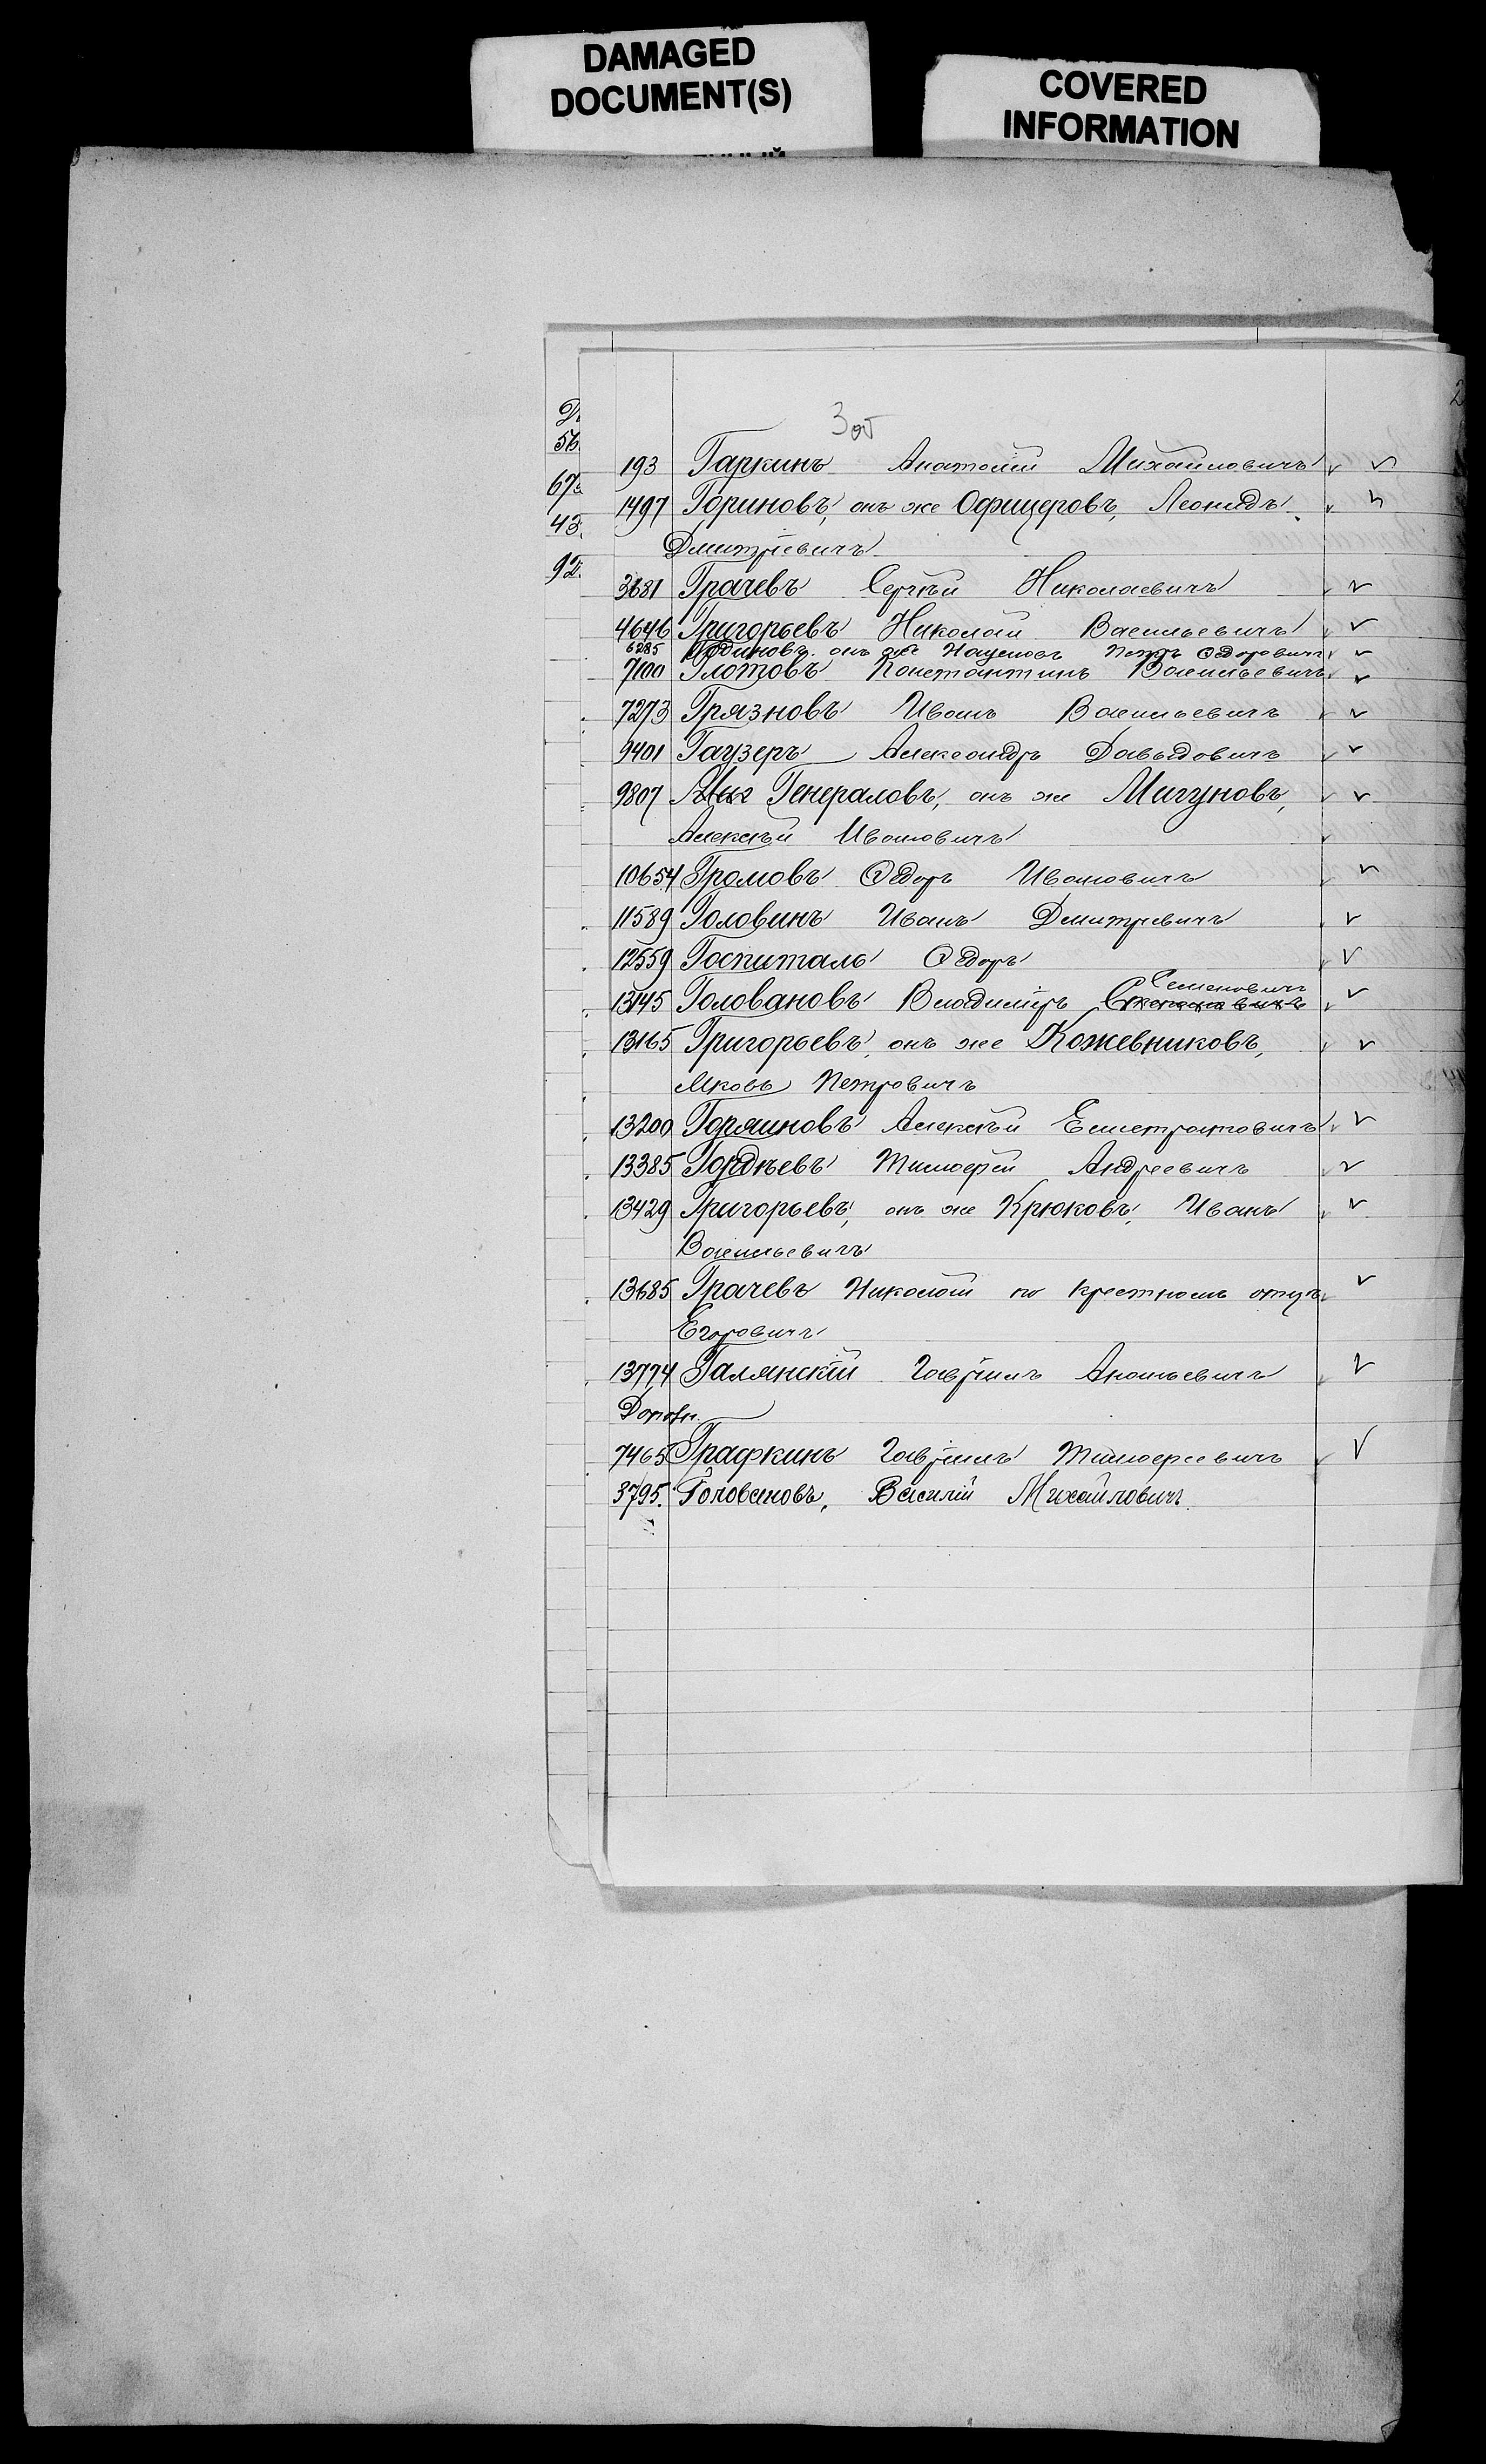 DAMAGED
DOCUMENT(S)
COVERED
INFORMATION
3 об
193 Гаркинъ Анатолій Михайловичъ
1497 Гориновъ, онъ же Офицеровъ, Леонидъ
Дмитріевичъ
3681 Грачевъ Сергѣй Николаевичъ
4646 Григорьевъ Николай Васильевичъ
6285 онъ же Петръ Ѳедоровичъ
7100 Глотовъ Константинъ Васильевичъ
7273 Грязновъ Иванъ Васильевичъ
9401 Гаузеръ Александръ Давыдовичъ
9807 Генераловъ, онъ же Мигуновъ,
Алексѣй Ивановичъ
10654 Громовъ Ѳедоръ Ивановичъ
11589 Головинъ Иванъ Дмитріевичъ
12559 Госпиталь Ѳедоръ
Семеновичъ
13145 Головановъ Владиміръ Степановичъ
13165 Григорьевъ, онъ же Кожевниковъ,
Яковъ Петровичъ
13200 Горяиновъ Алексѣй Елистратовичъ
13385 Гордѣевъ Тимофей Андреевичъ
13429 Григорьевъ, онъ же Крюковъ, Иванъ
Васильевичъ
13685 Грачевъ Николай по крестномъ отцѣ
Егоровичъ
13774 Галянскій Гавріилъ Ананьевичъ
7465 Графкинъ Гавріилъ Тимофеевичъ
3795. Головановъ, Василій Михайловичъ.
56
67
43.
92.